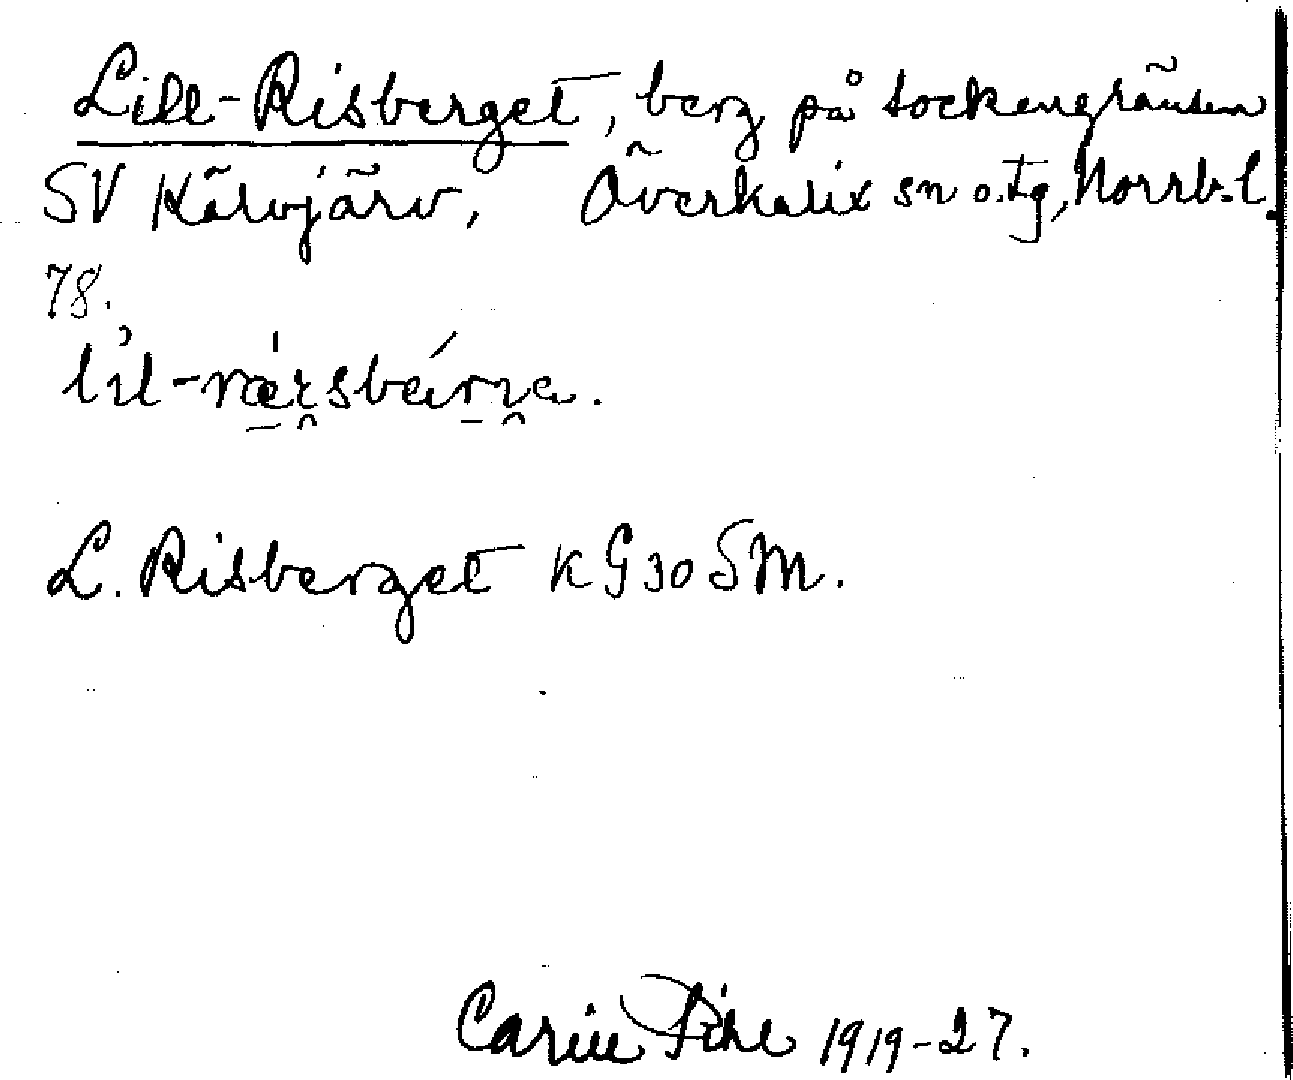 Lill-Risberget, berg på sockengränsen
SV Kälvjärv, Överkalix sn o. tg, Norrb. l.
78.
L. Risberget KG 30 SM.
Carin Pihl 1919-27.